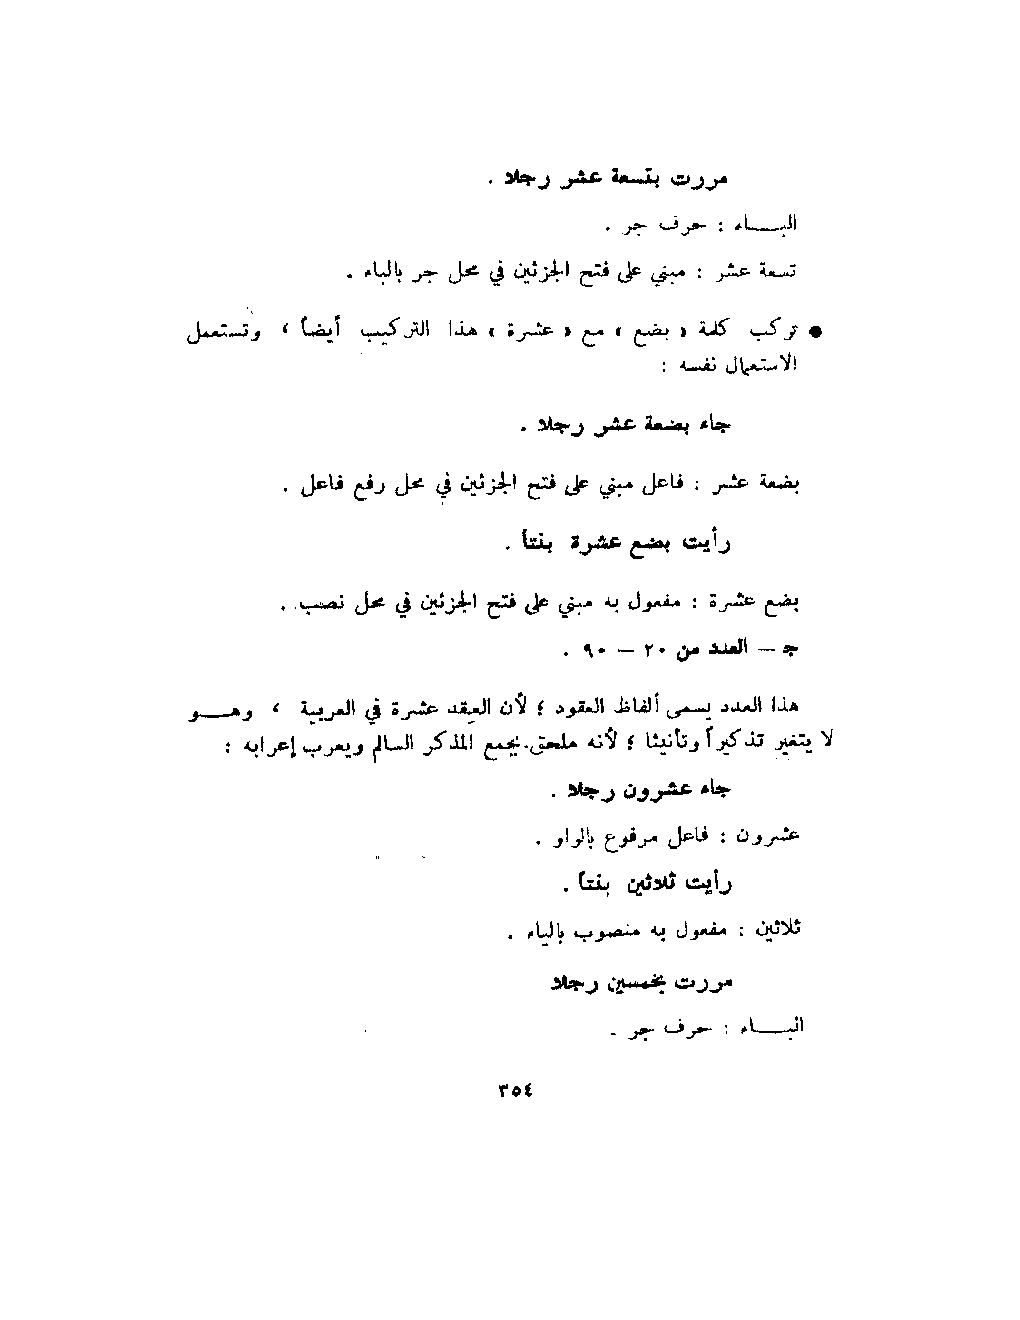 مررت بتسعة عشر رجلا .
البـــاء : حرف جر .
تسعة عشر : مبني على فتح الجزئين في محل جر بالباء .
● تركب كلمة « بضع » مع « عشرة » هذا التركيب أيضاً ، وتستعمل
الاستعمال نفسه :
جاء بضعة عشر رجلا .
بضعة عشر : فاعل مبني على فتح الجزئين في محل رفع فاعل .
رأيت بضع عشرة بنتاً .
بضع عشرة : مفعول به مبني على فتح الجزئين في محل نصب .
جـ – العدد من ٢٠ – ٩٠ .
هذا العدد يسمى ألفاظ العقود ؛ لأن العِقد عشرة في العربية ، وهـــو
لا يتغير تذكيراً وتأنيثا ؛ لأنه ملحق بجمع المذكر السالم ويعرب إعرابه :
جاء عشرون رجلا .
عشرون : فاعل مرفوع بالواو .
رأيت ثلاثين بنتاً .
ثلاثين : مفعول به منصوب بالياء .
مررت بخمسين رجلا
البـــاء : حرف جر .
٣٥٤